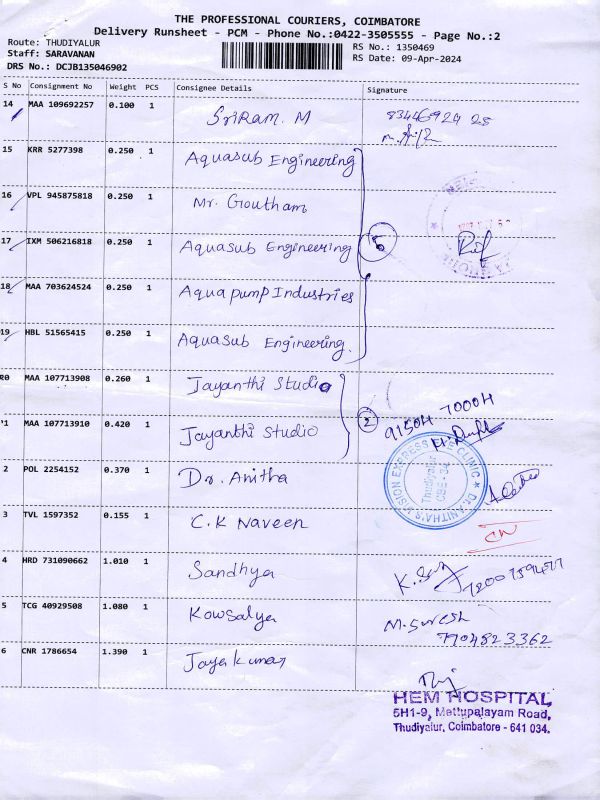 THE PROFESSIONAL COURIERS, COIMBATORE
Delivery Runsheet - PCM - Phone No.:0422-3505555 - Page No.:2
Route: THUDIYALUR
Staff: SARAVANAN
DRS No.: DCJB135046902
RS No.: 1350469
RS Date: 09-Apr-2024
S No Consignment No Weight PCS Consignee Details Signature
14 MAA 109692257 0.100 1 SriRam. M 8344692428
15 KRR 5277398 0.250 1 Aquasub Engineering
16 VPL 945875818 0.250 1 Mr. Goutham
17 IXM 506216818 0.250 1 Aquasub Engineering 5
18 MAA 703624524 0.250 1 Aqua pump Industries
19 HBL 51565415 0.250 1 Aquasub Engineering.
20 MAA 107713908 0.260 1 Jayanthi Studio
2 9150H 7000H
21 MAA 107713910 0.420 1 Jayanthi Studio
2 POL 2254152 0.370 1 Dr. Anitha
Dr. ANITHA'S VISION EXPRESS EYE CLINIC
Thudiyalur
CBE - 34
3 TVL 1597352 0.155 1 C.K Naveen
CN
4 HRD 731090662 1.010 1 Sandhya
5 TCG 40929508 1.080 1 Kowsalya M. Suresh
7704823362
6 CNR 1786654 1.390 1 Jayakumar
HEM HOSPITAL
5H1-9, Mettupalayam Road,
Thudiyalur, Coimbatore - 641 034.